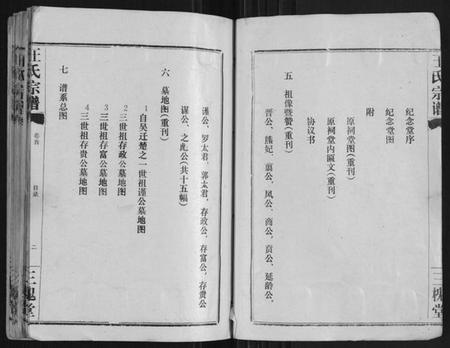 王氏宗谱
三槐堂
纪念堂序
纪念堂图
附
原祠堂图（重刊）
原祠堂内匾文（重刊）
协议书
五 祖像暨赞（重刊）
晋公、熊妃、翦公、凤公、商公、贲公、延龄公、
谨公、罗太君、郭太君、存政公、存富公、存贵公
谋公、之此公（共十五幅）
六 墓地图（重刊）
1自吴迁楚之一世祖谨公墓地图
2三世祖存政公墓地图
3三世祖存富公墓地图
4三世祖存贵公墓地图
七 谱系总图
王氏宗谱
卷首
目录
二
三槐堂